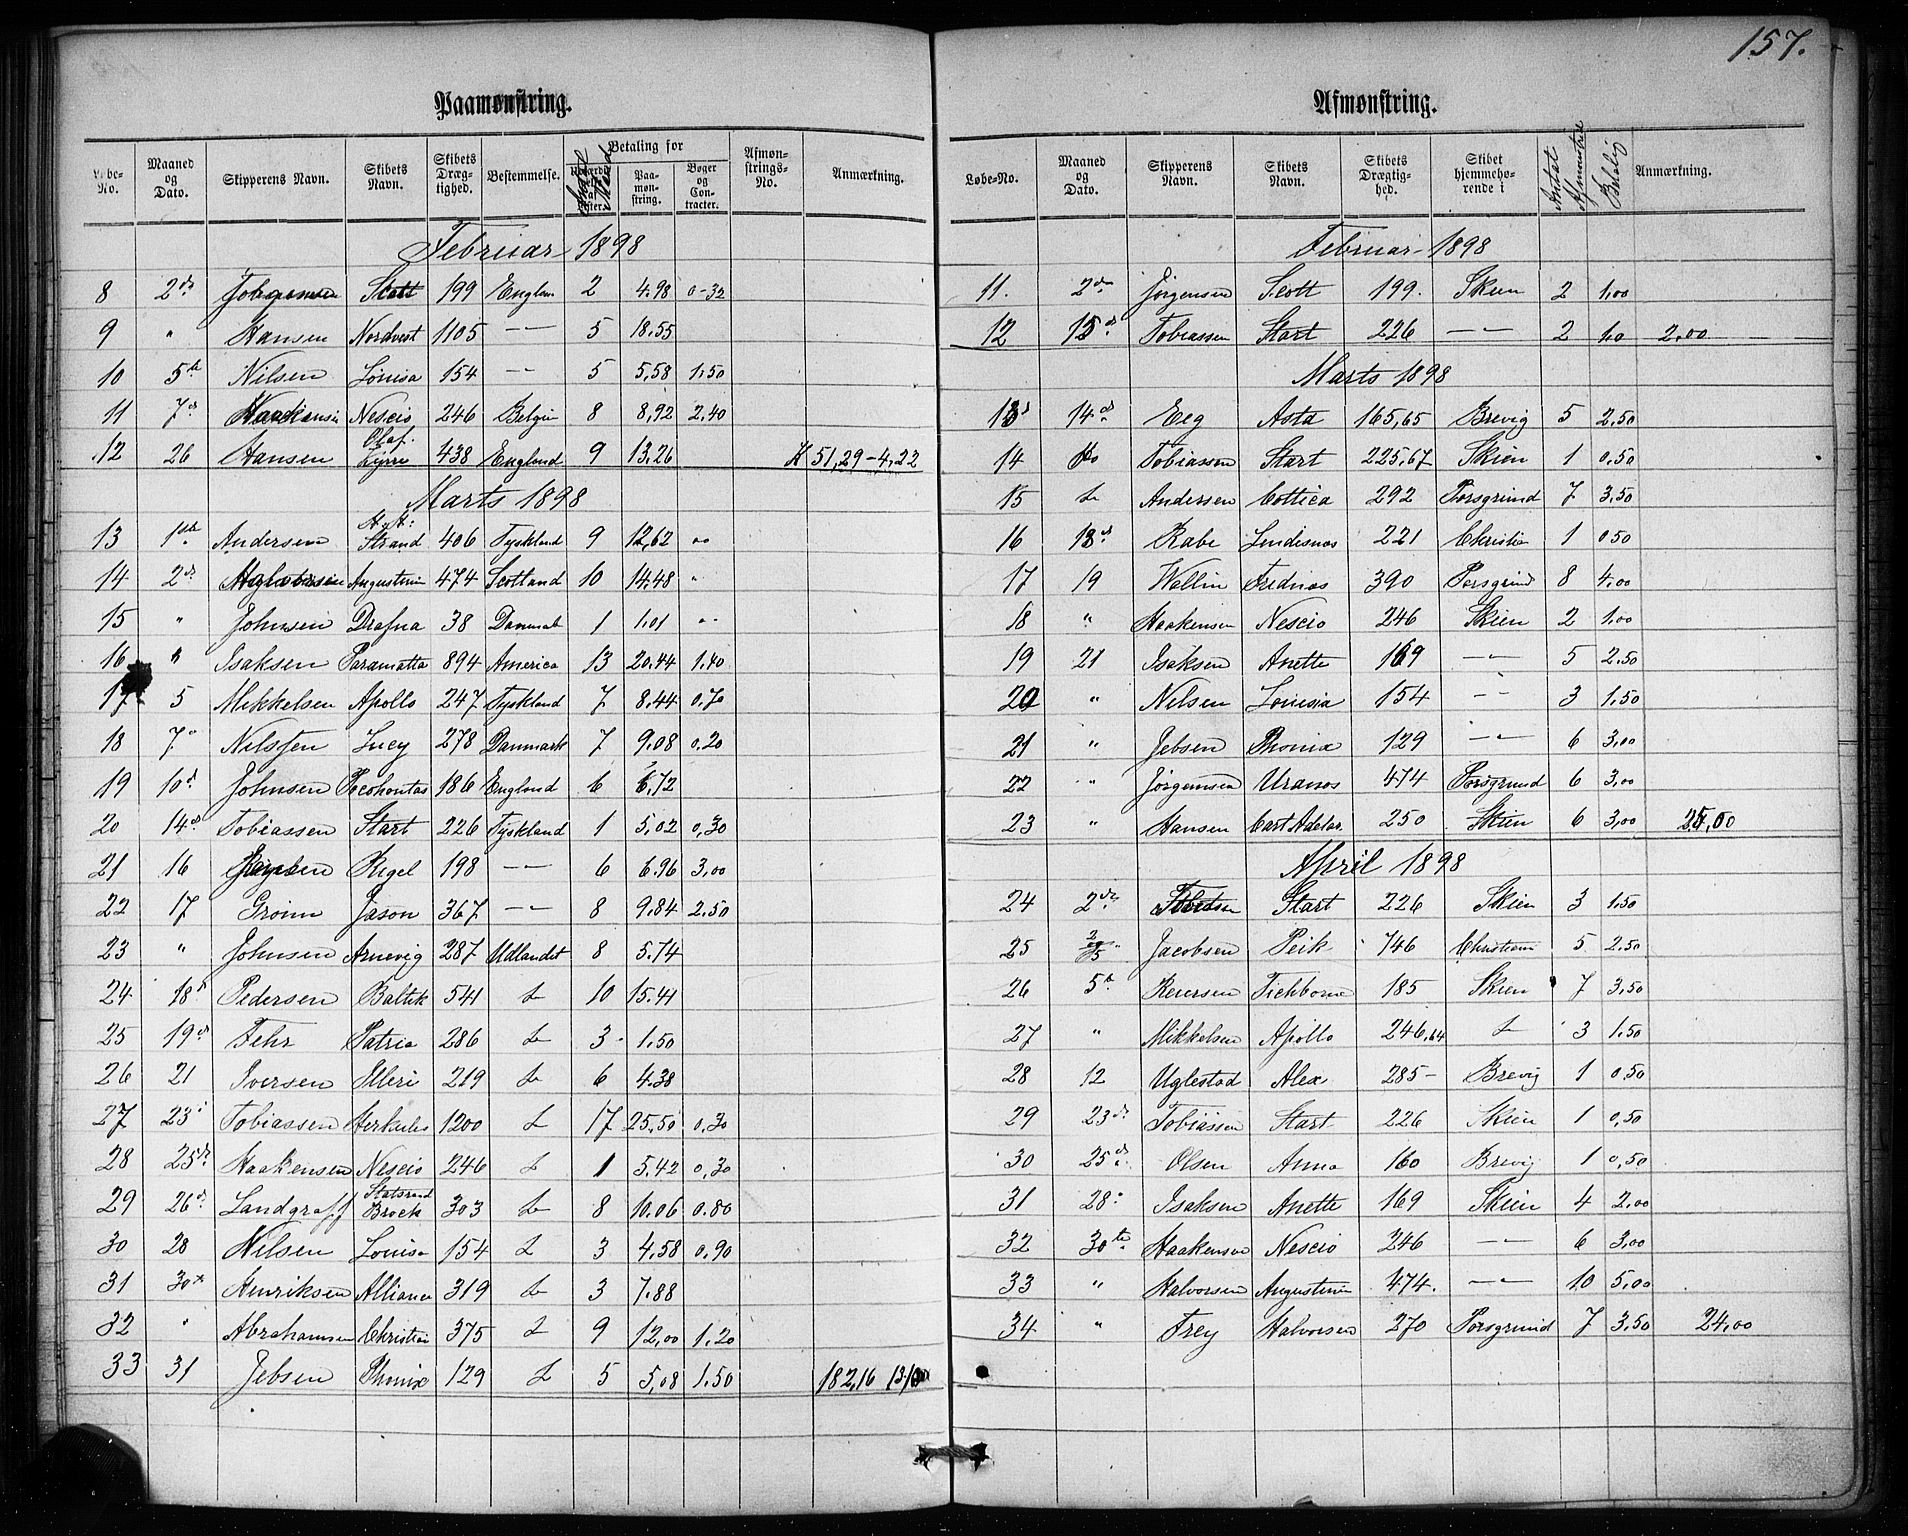 157.
Paamønstring.
Løbe-No. Maaned og Dato. Skipperens Navn. Skibets Navn. Skibets Drægtighed. Bestemmelse. Betaling for Antal Mand Paamønstring. Bøger og Contracter. Afmønstrings-No. Anmærkning.
Februar 1898
8 2de Jørgensen Scott 199 Englan 2 4.98 0-32
9 " Hansen Nordvest 1105 -"- 5 18.55
10 5te Nilsen Lovisa 154 -"- 5 5,58 1.50
11 7de Haakensen Nescio 246 Belgien 8 8,92 2,40
12 26 Hansen Olaf Kyrre 438 England 9 13,26 K 51,29-4,22
Marts 1898
13 1ste Andersen Strand 406 Tyskland 9 12,62 "
14 2de Halvorsen Augustinus 474 Scotland 10 14.48 "
15 " Johnsen Drafna 38 Danmark 1 1.01 "
16 " Isaksen Paramatta 894 America 13 20.44 1.40
17 5 Mikkelsen Apollo 247 Tyskland 7 8.44 0,70
18 7" Nilssen Lucy 278 Danmark 7 9.08 0.20
19 10de Johnsen Pocohontas 186 England 6 6.72
20 14de Tobiassen Start 226 Tyskland 1 5,02 0,30
21 16 Rigel 198 -"- 6 6.96 3,00
22 17 Grønn Jason 367 -"- 8 9.84 2.50
23 " Johnsen Arnevig 287 Udlandet 8 5.74
24 18de Pedersen Baltik 541 do 10 15.41
25 19de Fehr Patria 286 do 3 1.50
26 21 Iversen Elleri 219 do 6 4.38
27 23de Tobiassen Herkules 1200 do 17 25.50 0,30
28 25de Haakensen Nescio 246 do 1 5.42 0,30
29 26de Landgraff Statsraad Brock 303 do 8 10.06 0.80
30 28 Nilsen Lovisa 154 do 3 4.58 0,90
31 30te Henriksen Alliance 319 do 3 7.88
32 " Abrahamsen Christian 375 do 9 12,00 1.20
33 31 Jebsen Phønix 129 do 5 5,08 1.50 182,16
Afmønstring.
Løbe-No. Maaned og Dato. Skipperens Navn. Skibets Navn. Skibets Drægtighed. Skibet hjemmehørende i Antal Afmønstrede Beløb Anmærkning.
Februar 1898
11. 2den Jørgensen Scott 199. Skien 2 1,00
12 15de Tobiassen Start 226 -"- 2 1,0 2,00
Marts 1898
13 14de Eeg Asta 165,65 Brevig 5 2,50
14 do Tobiassen Start 225,67 Skien 1 0,50
15 do Andersen Cottica 292 Porsgrund 7 3,50
16 18de Rabe Lindesnæs 221 Christia 1 0.50
17 19 Wallin Frednæs 390 Porsgrund 8 4,00
18 " Haakensen Nescio 246 Skien 2 1,00
19 21 Isaksen Anette 169 -"- 5 2.50
20 " Nilsen Louisia 154 -"- 3 1,50
21 " Jebsen Phønix 129 -"- 6 3,00
22 " Jørgensen Uranos 474 Porsgrund 6 3,00
23 " Hansen Cort Adeler 250 Skien 6 3,00 25,00
April 1898
24 2den Start 226 Skien 3 1.50
25 Jacobsen Peik 746 Christiania 5 2.50
26 5te Tichborne 185 Skien 7 3.50
27 " Mikkelsen Apollo 246,64 do 3 1.50
28 12 Uglestad Alex 285- Brevig 1 0.50
29 23de Tobiassen Start 226 Skien 1 0,50
30 25de Olsen Anna 160 Brevig 1 0,50
31 28" Isaksen Anette 169 Skien 4 2,00
32 30te Haakensen Nescio 246 -"- 6 3,00
33 " Halvorsen Augustinus 474. -"- 10 5,00
34 " Frey Halvorsen 270 Porsgrund 7 3,50 24,00